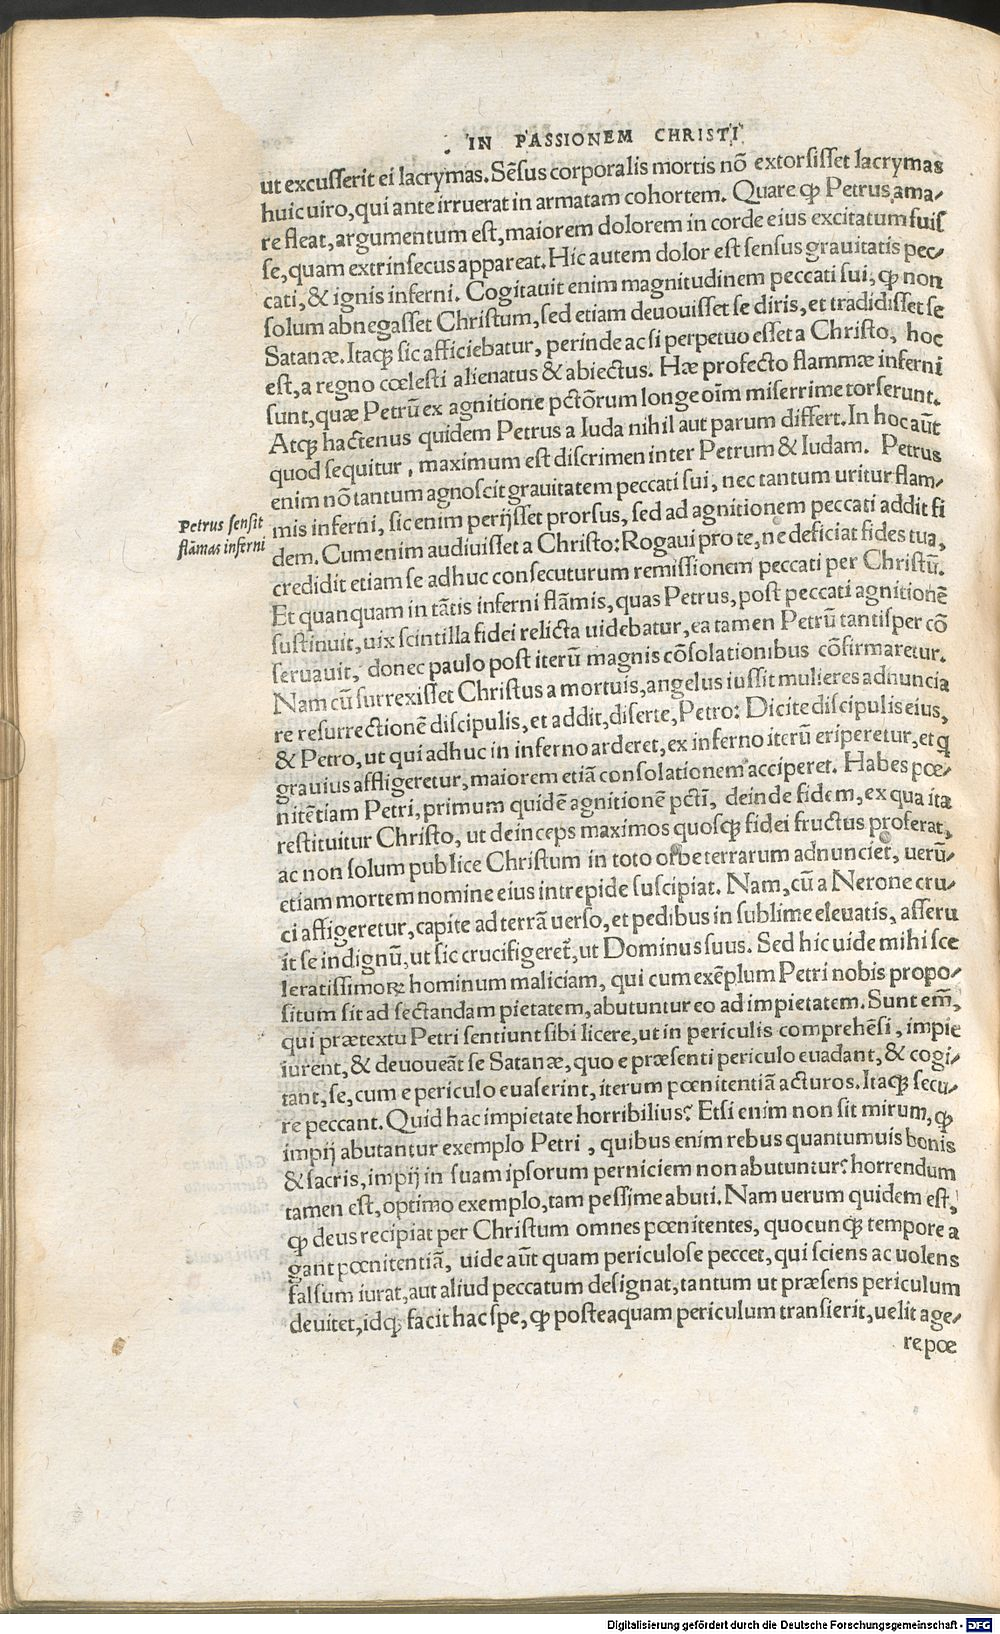 IN PASSIONEM CHRISTI
ut excusserit ei lacrymas. Sẽsus corporalis mortis nõ extorsisset lacrymas
huic uiro, qui ante irruerat in armatam cohortem. Quare ꝙ Petrus ama/
re fleat, argumentum est, maiorem dolorem in corde eius excitatum fuis
se, quam extrinsecus appareat. Hic autem dolor est sensus grauitatis pec/
cati, & ignis inferni. Cogitauit enim magnitudinem peccati sui, ꝙ non
solum abnegasset Christum, sed etiam deuouisset se diris, et tradidisset se
Satanæ. Itaqꝫ sic afficiebatur, perinde ac si perpetuo esset a Christo, hoc
est, a regno cœlesti alienatus & abiectus. Hæ profecto flammæ inferni
sunt, quæ Petrũ ex agnitione pctõrum longe oĩm miserrime torserunt.
Atqꝫ hactenus quidem Petrus a Iuda nihil aut parum differt. In hoc aũt
quod sequitur, maximum est discrimen inter Petrum & Iudam. Petrus
enim nõ tantum agnoscit grauitatem peccati sui, nec tantum uritur flam/
Petrus sensit
flãmas inferni
mis inferni, sic enim perijsset prorsus, sed ad agnitionem peccati addit fi
dem. Cum enim audiuisset a Christo: Rogaui pro te, ne deficiat fides tua,
credidit etiam se adhuc consecuturum remissionem peccati per Christũ.
Et quanquam in tãtis inferni flãmis, quas Petrus, post peccati agnitionẽ
sustinuit, uix scintilla fidei relicta uidebatur, ea tamen Petrũ tantisper cõ
seruauit, donec paulo post iterũ magnis cõsolationibus cõfirmaretur.
Nam cũ surrexisset Christus a mortuis, angelus iussit mulieres adnuncia
re resurrectionẽ discipulis, et addit, diserte, Petro: Dicite discipulis eius,
& Petro, ut qui adhuc in inferno arderet, ex inferno iterũ eriperetur, et q̃
grauius affligeretur, maiorem etiã consolationem acciperet. Habes pœ/
nitẽtiam Petri, primum quidẽ agnitionẽ pctĩ, deinde fidem, ex qua ita
restituitur Christo, ut deinceps maximos quosqꝫ fidei fructus proferat,
ac non solum publice Christum in toto orbe terrarum adnunciet, uerũ/
etiam mortem nomine eius intrepide suscipiat. Nam, cũ a Nerone cru/
ci affigeretur, capite ad terrã uerso, et pedibus in sublime eleuatis, asseru
it se indignũ, ut sic crucifigeret̃, ut Dominus suus. Sed hic uide mihi sce
leratissimoꝝ hominum maliciam, qui cum exẽplum Petri nobis propo/
situm sit ad sectandam pietatem, abutuntur eo ad impietatem. Sunt em̃,
qui prætextu Petri sentiunt sibi licere, ut in periculis comprehẽsi, impie
iurent, & deuoueãt se Satanæ, quo e præsenti periculo euadant, & cogi/
tant, se, cum e periculo euaserint, iterum pœnitentiã acturos. Itaqꝫ secu/
re peccant. Quid hac impietate horribilius? Etsi enim non sit mirum, ꝙ
impij abutantur exemplo Petri, quibus enim rebus quantumuis bonis
& sacris, impij in suam ipsorum perniciem non abutuntur? horrendum
tamen est, optimo exemplo, tam pessime abuti. Nam uerum quidem est,
ꝙ deus recipiat per Christum omnes pœnitentes, quocunqꝫ tempore a
gant pœnitentiã, uide aũt quam periculose peccet, qui sciens ac uolens
falsum iurat, aut aliud peccatum designat, tantum ut præsens periculum
deuitet, idqꝫ facit hac spe, ꝙ posteaquam periculum transierit, uelit age/
re pœ
Digitalisierung gefördert durch die Deutsche Forschungsgemeinschaft - DFG